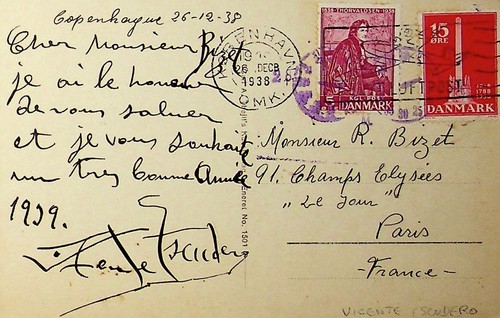 Copenhague 26-12-38
Cher Monsieur Bizet
je ai le honeur
de vous saluer
et je vous souhaite
un tres bonne Année
1939.
Vicente Escudero
KØBENHAVN
26 DECB
1938
OMK.
1838-THORVALDSEN-1938
DANMARK
15
ØRE
1788
DANMARK
LUFTPOST
Monsieur R. Bizet
91. Champs Elysées
„ Le Jour"
Paris
-France-
Eneret No. 1501
VICENTE ESCUDERO